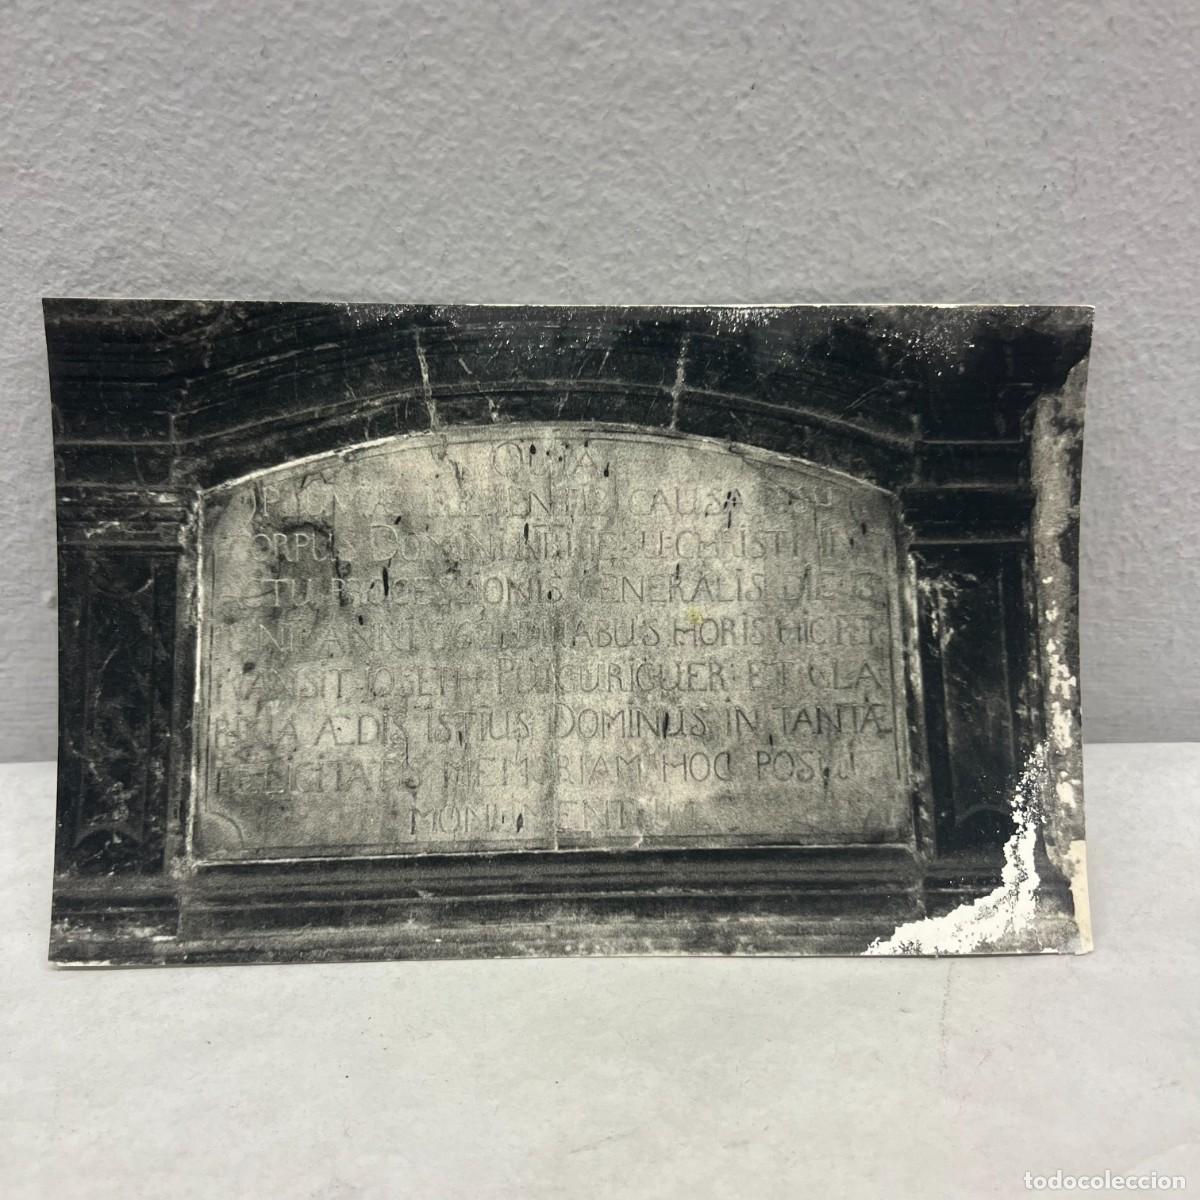 QUIA
CAUSA
CORPUS DOMINI NTRI JESU CHRISTI IN
PROCESSIONIS GENERALIS DIE 13
JUNII ANNI DUABUS HORIS HIC PER
MANSIT JOSEPH PUIGURIGUER ET CLA
RIANA ÆDIS ISTIUS DOMINUS IN TANTÆ
FELICITATIS MEMORIAM HOC POSUIT
MONUMENTUM
todocoleccion